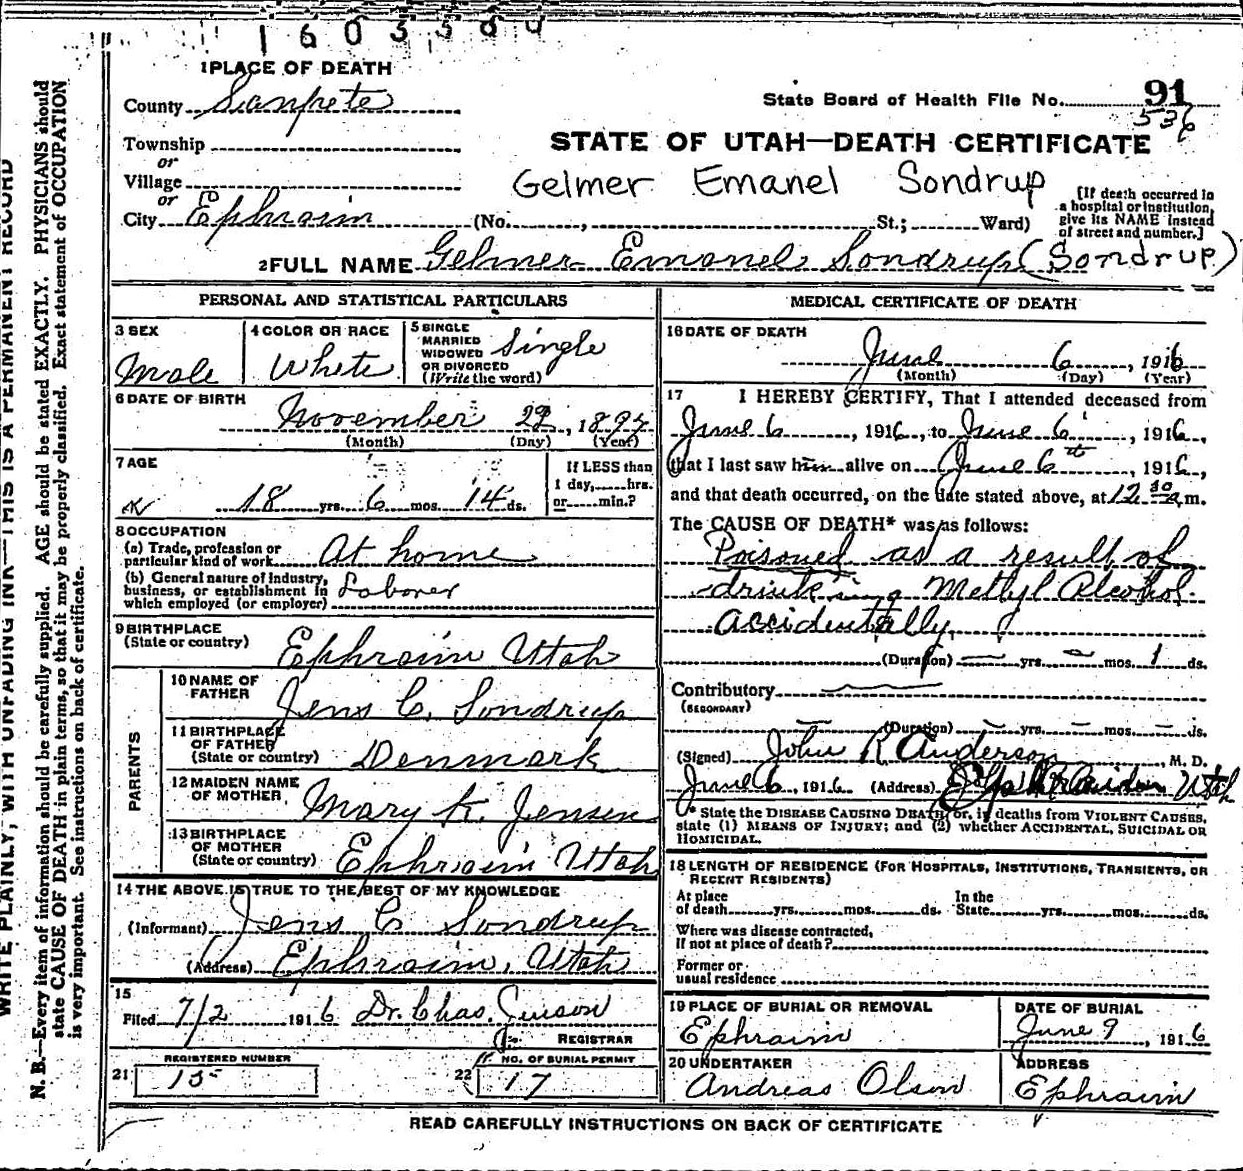 1603564
1 PLACE OF DEATH
County Sanpete
Township
or
Village
or
City Ephraim (No. , St.; Ward)
State Board of Health File No. 91
536
STATE OF UTAH—DEATH CERTIFICATE
Gelmer Emanel Sondrup
[If death occurred in
a hospital or institution,
give its NAME instead
of street and number.]
2 FULL NAME Gelmer Emanel Sondrup (Sondrup)
PERSONAL AND STATISTICAL PARTICULARS
3 SEX
Male
4 COLOR OR RACE
White
5 SINGLE
MARRIED
WIDOWED
OR DIVORCED
(Write the word)
Single
6 DATE OF BIRTH
November 22, 1897
(Month) (Day) (Year)
7 AGE
18 yrs. 6 mos. 14 ds.
If LESS than
1 day, hrs.
or min.?
8 OCCUPATION
(a) Trade, profession or
particular kind of work At home
(b) General nature of industry,
business, or establishment in
which employed (or employer) Laborer
9 BIRTHPLACE
(State or country) Ephraim Utah
PARENTS
10 NAME OF
FATHER Jens C. Sondrup
11 BIRTHPLACE
OF FATHER
(State or country) Denmark
12 MAIDEN NAME
OF MOTHER Mary K. Jensen
13 BIRTHPLACE
OF MOTHER
(State or country) Ephraim Utah
14 THE ABOVE IS TRUE TO THE BEST OF MY KNOWLEDGE
(Informant) Jens C Sondrup
(Address) Ephraim, Utah
15
Filed 7/2 1916 Dr. Chas.
REGISTRAR
REGISTERED NUMBER
21 15
NO. OF BURIAL PERMIT
22 17
MEDICAL CERTIFICATE OF DEATH
16 DATE OF DEATH
June 6, 1916
(Month) (Day) (Year)
17 I HEREBY CERTIFY, That I attended deceased from
June 6, 1916, to June 6, 1916,
that I last saw him alive on June 6th, 1916,
and that death occurred, on the date stated above, at 12 30 a m.
The CAUSE OF DEATH* was as follows:
Poisoned as a result of
drinking Methyl Alcohol
accidentally
(Duration) — yrs. — mos. 1 ds.
Contributory
(SECONDARY)
(Duration) — yrs. — mos. — ds.
(Signed) John R Anderson, M. D.
June 6, 1916 (Address) Utah
* State the DISEASE CAUSING DEATH, or, if deaths from VIOLENT CAUSES,
state (1) MEANS OF INJURY; and (2) whether ACCIDENTAL, SUICIDAL OR
HOMICIDAL.
18 LENGTH OF RESIDENCE (FOR HOSPITALS, INSTITUTIONS, TRANSIENTS, OR
RECENT RESIDENTS)
At place In the
of death yrs. mos. ds. State yrs. mos. ds.
Where was disease contracted,
If not at place of death?
Former or
usual residence
19 PLACE OF BURIAL OR REMOVAL
Ephraim
DATE OF BURIAL
June 9, 1916
20 UNDERTAKER
Andreas Olson
ADDRESS
Ephraim
READ CAREFULLY INSTRUCTIONS ON BACK OF CERTIFICATE
WRITE PLAINLY, WITH UNFADING INK—THIS IS A PERMANENT RECORD
N. B.—Every item of information should be carefully supplied. AGE should be stated EXACTLY. PHYSICIANS should
state CAUSE OF DEATH in plain terms, so that it may be properly classified. Exact statement of OCCUPATION
is very important. See instructions on back of certificate.